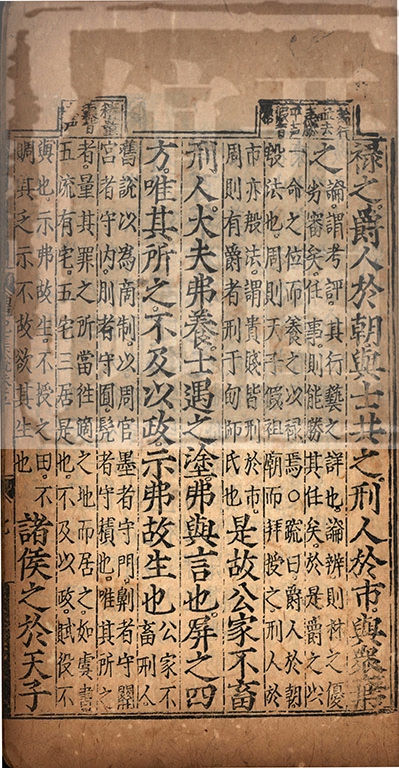 祿之。爵人於朝與士共之。刑人於市與衆棄
之
論謂考評其行藝之詳也。論辨則材之優
劣審矣。任事則能勝其任矣於是爵之以
一命之位而養之以祿焉。○疏曰爵人於朝
殷法也。周則天子假祖廟而拜授之刑人於
市亦殷法。謂貴賤皆刑於市。
周則有爵者刑于甸師氏也
是故公家不畜
刑人。大夫弗養。士遇之塗弗與言也。屏之四
方。唯其所之不及以政。示弗故生也
公家不
畜刑人
舊說以為商制。以周官墨者守門。劓者守關
宮者守內。刖者守囿。髡者守積也。唯其所之
者。量其罪之所當往適之地而居之。如虞書
五流有宅。五宅三居是也。不及以政。賦役不
與也。示弗故生。不授之田。不
賙其乏示不故欲其生也
諸侯之於天子